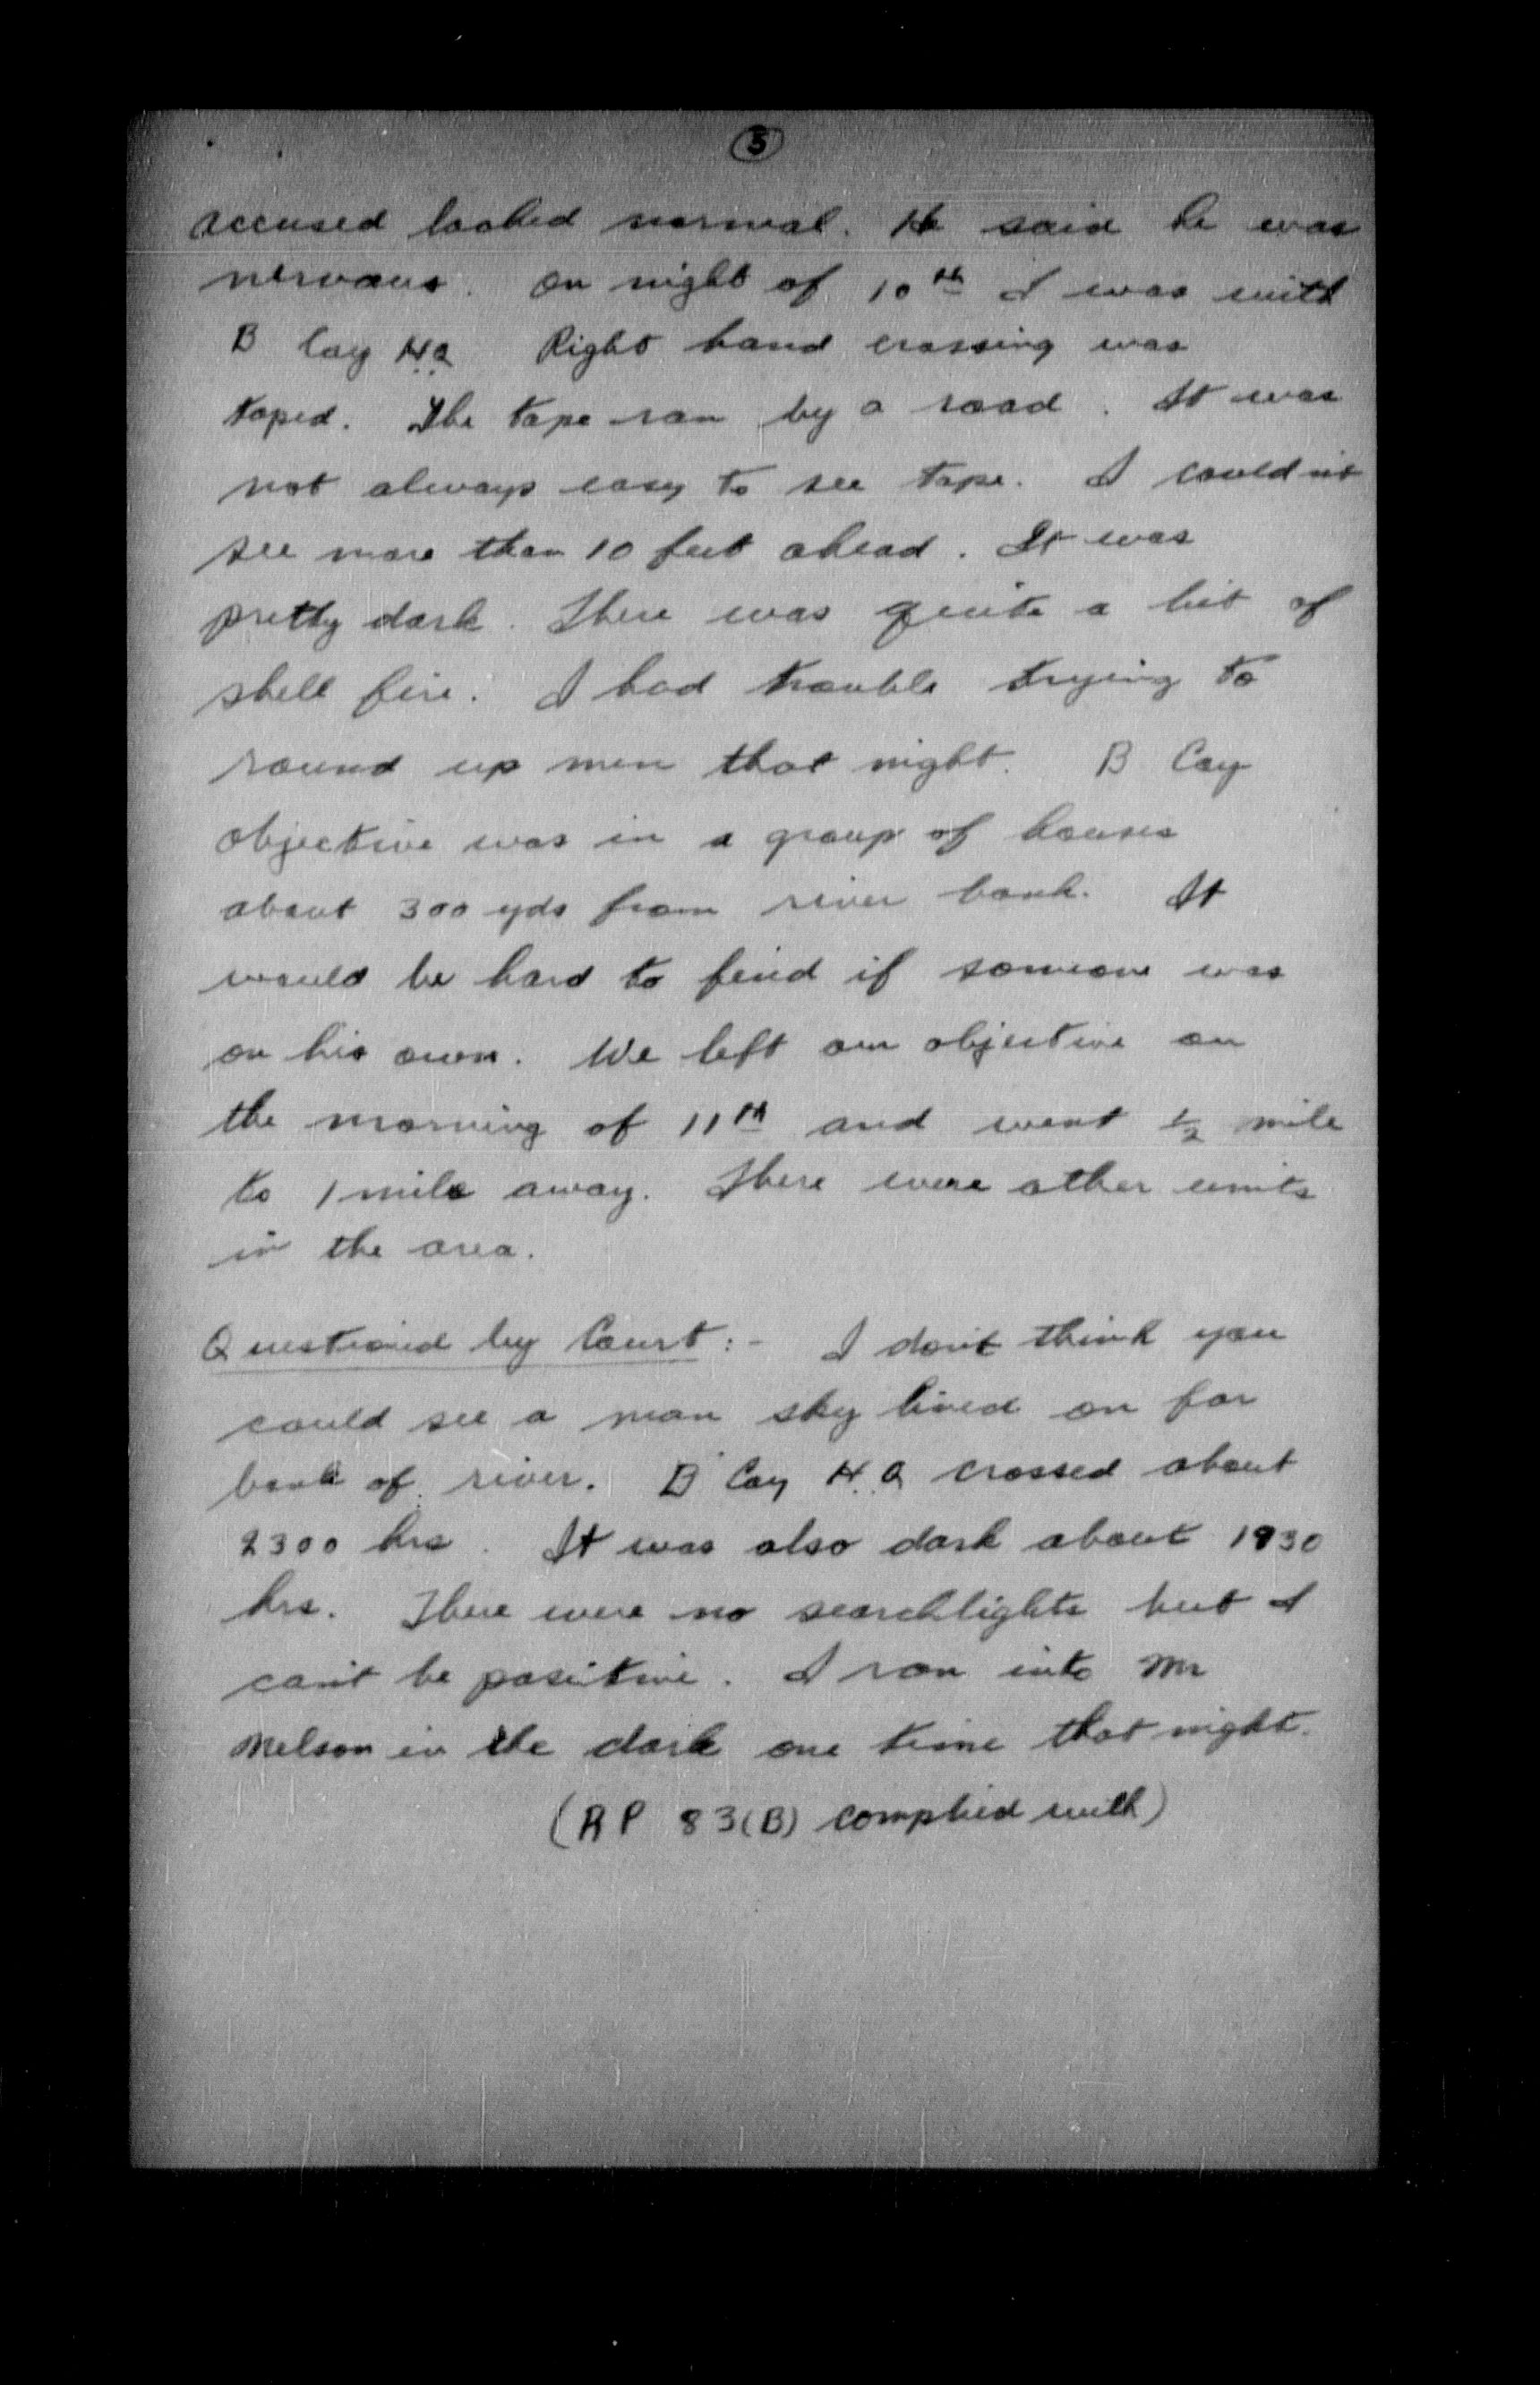 5
accused looked normal. He said he was
nervous. On night of 10th I was with
B Coy H.Q Right hand crossing was
taped. The tape ran by a road. It was
not always easy to see tape. I couldn't
see more than 10 feet ahead. It was
pretty dark. There was quite a bit of
shell fire. I had trouble trying to
round up men that night. B Coy
objective was in a group of houses
about 300 yds from river bank. It
would be hard to find if someone was
on his own. We left our objective on
the morning of 11th and went ½ mile
to 1 mile away. There were other units
in the area.
Questioned by Court:- I don't think you
could see a man sky lined on far
bank of river. B Coy H.Q crossed about
2300 hrs. It was also dark about 1930
hrs. There were no searchlights but I
can't be positive. I ran into Mr
Nelson in the dark one time that night.
(RP 83(B) complied with)